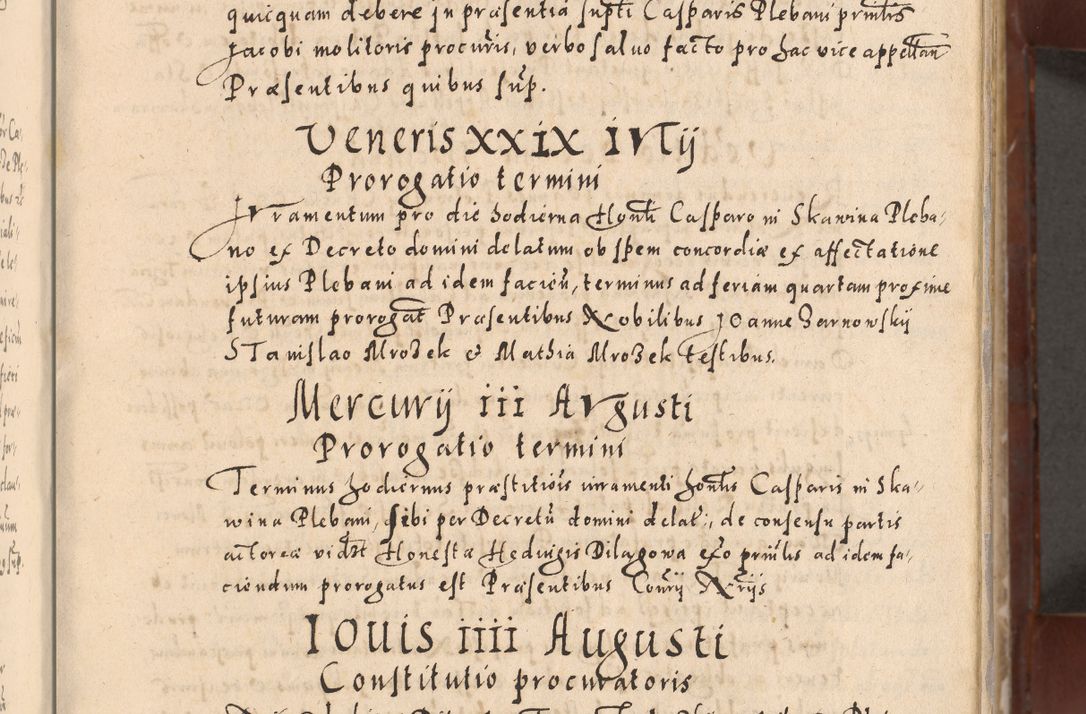 quicquam debere in præsentia supti Casparis Plebani prntis
Jacobi molitoris procuris, verbo saluo facto pro hac vice appellan
Præsentibus quibus sup.
Veneris XXIX IVlij
Prorogatio termini
Jvramentum pro die hodierna Honti Casparo in Skawina Pleba-
no ex Decreto domini delatum ob spem concordiæ ex affectatione
ipsius Plebani ad idem faciēn, terminus ad feriam quartam proxime
futuram prorogat Præsentibus Nobilibus Joanne Zarnowskij
STanislao Mrozek & Mathia Mrozek testibus.
Mercurij iii Avgusti
Prorogatio termini
Terminus hodiernus præstitiōis iuramenti hontis Casparis in Ska-
wina Plebani, sibi per Decretū domini delat:, de consensu partis
actoreæ vidzt Honestæ Hedvigis Dilagowa exo prntis ad idem fa-
ciendum prorogatus est Præsentibus Conrij Nrijs
IOuis iiii Augusti
Constitutio procuratoris